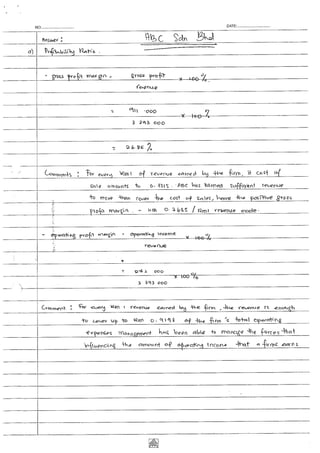 NO.:
DATE:
Answer :
ABC Sdn Bhd
a) Profitability Ratio.
- gross profit margin = gross profit x 100%
revenue
= 000 x 100%
3 393 000
= 26.86 %
Comments : For every RM1 of revenue earned by the firm, it cost of
sale amounts to 0. ABC has earned sufficient revenue
to more than cover the cost of sales, hence the positive gross
profit margin - RM 0. / RM1 revenue made.
- operating profit margin = operating income x 100%
revenue
=
= 000 x 100%
3 393 000
Comment : For every RM 1 revenue earned by the firm, the revenue is enough
to cover up to RM 0. of the firm's total operating
expenses management has been able to manage the forces that
influencing the amount of operating income that a firm earns